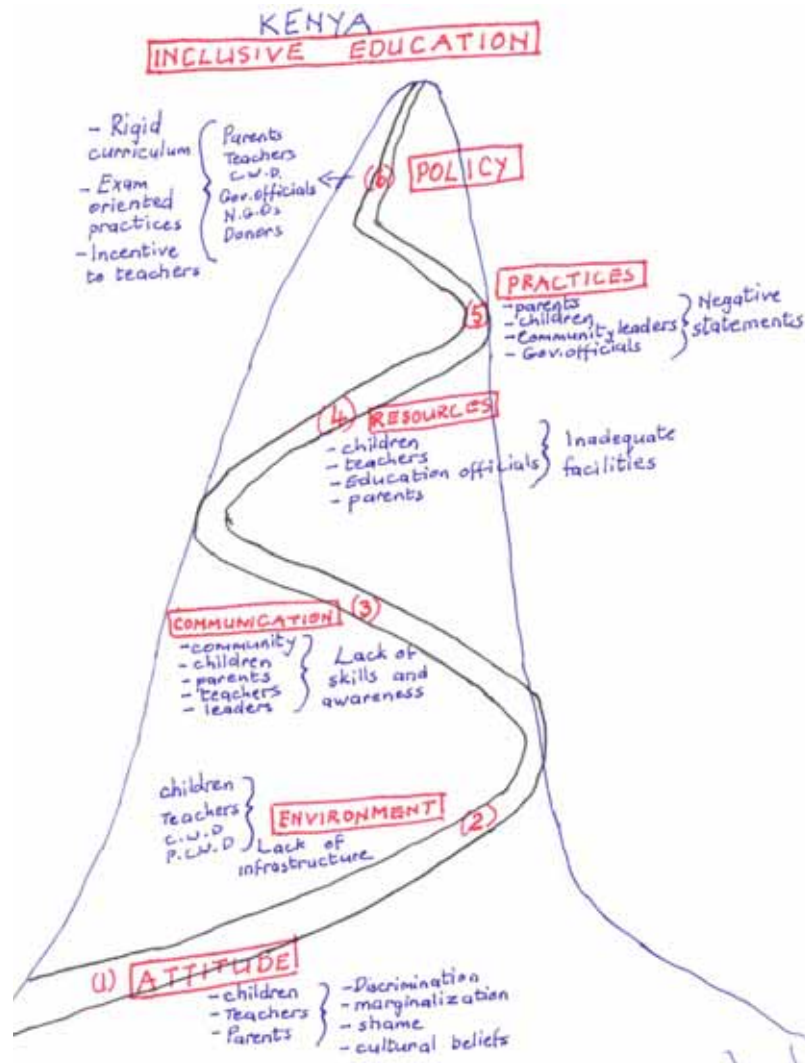 KENYA
INCLUSIVE EDUCATION
- Rigid
curriculum
- Exam
oriented
practices
- Incentive
to teachers
Parents
Teachers
C.W.D.
Gov. officials
N.G.Os
Donors
(6) POLICY
PRACTICES
(5)
- parents
- children
- Community leaders
- Gov. officials
Negative
statements
(4) RESOURCES
- children
- teachers
- Education officials
- parents
Inadequate
facilities
(3)
COMMUNICATION
- community
- children
- parents
- teachers
- leaders
Lack of
skills and
awareness
children
Teachers
C.W.D
P.C.W.D
ENVIRONMENT (2)
Lack of
infrastructure
(1) ATTITUDE
- children
- Teachers
- Parents
- Discrimination
- marginalization
- shame
- cultural beliefs